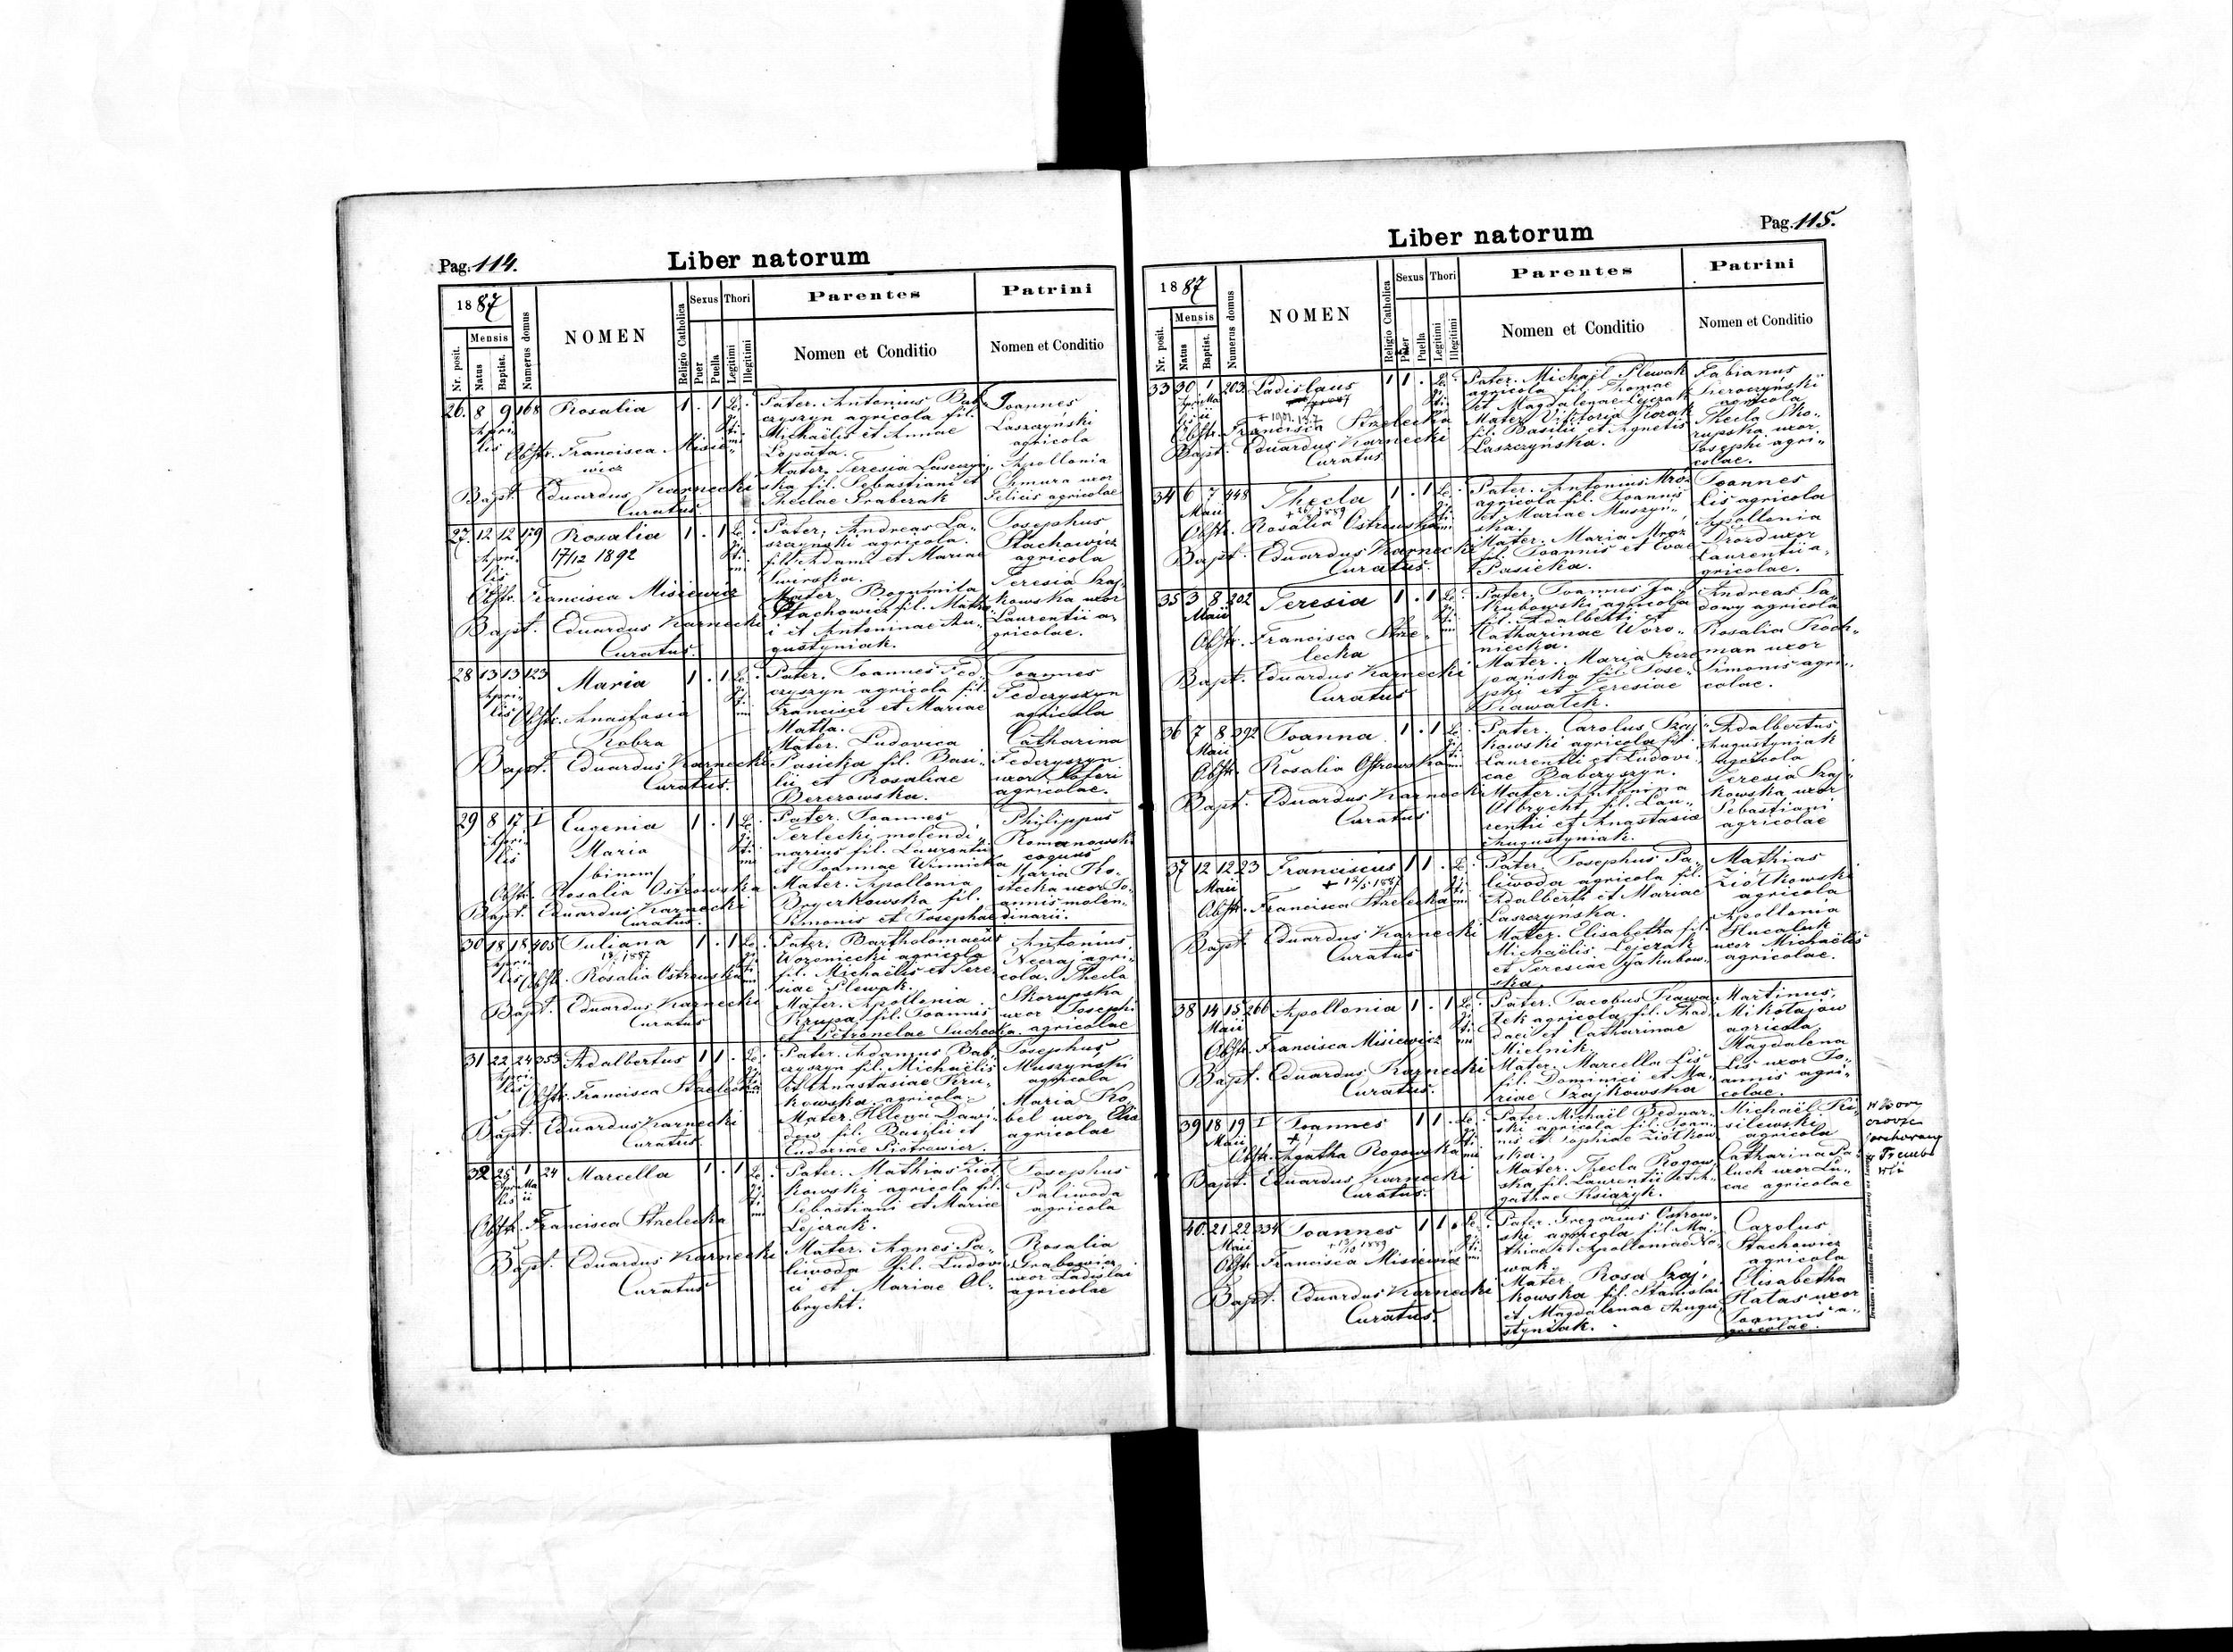 Pag. 114.
Liber natorum
1887
Mensis
Nr. posit.
Natus
Baptist.
Numerus domus
NOMEN
Religio Catholica
Sexus
Puer
Puella
Thori
Legitimi
Illegitimi
Parentes
Nomen et Conditio
Patrini
Nomen et Conditio
26. 8 9 168 Rosalia 1 . 1
Aprilis
Obstr. Francisca Misie-
wicz
Bapt. Eduardus Karnecki
Curatus.
Pater. Antonius Bab-
czyszyn agricola fil.
Michaëlis et Annae
Lopata.
Mater. Teresia Laszczyń-
ska fil. Sebastiani et
Theclae Grabczak
Joannes
Laszczyński
agricola
Apollonia
Chmura uxor
Felicis agricolae
27. 12 12 179 Rosalia 1 . 1
17/12 1892
Obstr. Francisca Misiewicz
Bapt. Eduardus Karnecki
Curatus.
Pater, Andreas La-
szczynski agricola.
fil. Adami et Mariae
Swirska.
Mater Bogumila
Stachowicz fil. Math-
i et Antoninae Au-
gustyniak.
Josephus
Stachowicz
agricola
Teresia Szaj-
kowska uxor
Laurentii a-
gricolae.
28 13 13 123 Maria 1 . 1
Obstr. Anastasia
Kobza
Bapt. Eduardus Karnecki
Curatus.
Pater. Joannes Fed-
czyszyn agricola fil.
Francisci et Mariae
Matla.
Mater. Ludovica
Pasieka fil. Basi-
lii et Rosaliae
Berezowska.
Joannes
Fedczyszyn
agricola
Catharina
Fedczyszyn
uxor
agricolae.
29 8 17 I Eugenia 1 . 1
Maria
/binom/
Obstr. Rosalia Ostrowska
Bapt. Eduardus Karnecki
Curatus.
Pater. Joannes
Terlecki molendi-
narius fil. Laurentii
et Joannae Winnicka
Mater. Apollonia
Bryczkowska fil.
Simonis et Josephae
Philippus
Romanowski
coquus
Maria Ko-
stecka uxor Jo-
annis molen-
dinarii.
30 18 18 405 Juliana 1 . 1
Obstr. Rosalia Ostrowska
Bapt. Eduardus Karnecki
Curatus
Pater. Bartholomaeus
Wozeniecki agricola
fil. Michaëlis et Tere-
siae Plewak.
Mater. Apollonia
Krupa fil. Joannis
et Petronelae Suchecka
Antonius
agri-
cola. Thecla
Skorupska
uxor Josephi
agricolae
31 22 24 353 Adalbertus 1 1 .
Obstr. Francisca Strzelecka
Bapt. Eduardus Karnecki
Curatus.
Pater. Adamus Bab-
czyszyn fil. Michaëlis
et Anastasiae Kru-
kowska agricola.
Mater. Helena Dawi-
dow fil. Basilii et
Eudoxiae Piotrowicz.
Josephus
Muszynski
agricola
Maria Ko-
bel uxor Elia
agricolae
32 25 1 24 Marcella 1 . 1
Obstr. Francisca Strzelecka
Bapt. Eduardus Karnecki
Curatus
Pater. Mathias Ziół-
kowski agricola fil.
Sebastiani et Mariae
Lejczak.
Mater. Agnes Pa-
liwoda fil. Ludovi-
ci et Mariae Ol-
brycht.
Josephus
Paliwoda
agricola
Rosalia
Grabowicz
uxor Ladislai
agricolae
Pag. 115.
Liber natorum
1887
Mensis
Nr. posit.
Natus
Baptist.
Numerus domus
NOMEN
Religio Catholica
Sexus
Puer
Puella
Thori
Legitimi
Illegitimi
Parentes
Nomen et Conditio
Patrini
Nomen et Conditio
33 30 1 203 Ladislaus 1 1 .
Obstr. Francisca Strzelecka
Bapt. Eduardus Karnecki
Curatus
Pater. Michaël Plewak
agricola fil. Thomae
et Magdalenae Lejczak
Mater Viktoria Kozak
fil. Basilii et Agnetis
Laszczyńska.
Fabianus
Sieroczyński
agricola
Thecla Sko-
rupska uxor
Josephi agri-
colae.
34 6 7 448 Thecla 1 . 1
Maii
Obstr. Rosalia Ostrowska
Bapt. Eduardus Karnecki
Curatus.
Pater. Antonius Mróz
agricola fil. Joannis
et Mariae Muszyń-
ska.
Mater. Maria Mroz
fil. Joannis et Evae
Pasieka.
Joannes
Lis agricola
Apollonia
Drozd uxor
Laurentii a-
gricolae.
35 3 8 202 Teresia 1 . 1
Maii
Obstr. Francisca Strze-
lecka
Bapt. Eduardus Karnecki
Curatus
Pater. Joannes Ja-
kubowski agricola
fil. Adalberti et
Catharinae Woro-
niecka.
Mater. Maria
fil. Jose-
phi et Teresiae
Kawalek.
Andreas Sa-
dowy agricola
Rosalia Koch-
man uxor
Simonis agri-
colae.
36 7 8 392 Joanna 1 . 1
Maii
Obstr. Rosalia Ostrowska
Bapt. Eduardus Karnecki
Curatus
Pater. Carolus Szaj-
kowski agricola fil.
Laurentii et Ludovi-
cae Babczyszyn.
Mater. Antonina
Olbrycht fil. Lau-
rentii et Anastasiae
Augustyniak.
Adalbertus
Augustyniak
agricola
Teresia Szaj-
kowska uxor
Sebastiani
agricolae
37 12 12 23 Franciscus 1 1 .
Maii + 12/5 1887
Obstr. Francisca Strzelecka
Bapt. Eduardus Karnecki
Curatus
Pater. Josephus Pa-
liwoda agricola fil.
Adalberti et Mariae
Laszczynska.
Mater. Elisabetha fil.
Michaëlis Lejczak
et Teresiae Jakubow-
ska.
Mathias
Ziółkowski
agricola
Apollonia
Hucaluk
uxor Michaëlis
agricolae.
38 14 15 266 Apollonia 1 . 1
Maii
Obstr. Francisca Misiewicz
Bapt. Eduardus Karnecki
Curatus.
Pater. Jacobus Kawa-
lek agricola fil. Thad-
daei et Catharinae
Mielnik.
Mater. Marcella Lis
fil. Dominici et Ma-
riae Szajkowska
Martinus
Mikołajow
agricola
Magdalena
Lis uxor Jo-
annis agri-
colae.
39 18 19 I Joannes 1 1 .
Maii +
Obstr. Agatha Rogowska
Bapt. Eduardus Karnecki
Curatus.
Pater Michaël Bednar-
ski agricola fil. Joan-
nis et Sophiae Ziółkow-
ska.
Mater. Thecla Rogow-
ska fil. Laurentii et A-
gathae Ksiażyk.
Michaël Ki-
silewski
agricola
Catharina Pa-
luch uxor Lu-
cae agricolae
40. 21 22 334 Joannes 1 1 .
Maii
Obstr. Francisca Misiewicz
Bapt. Eduardus Karnecki
Curatus.
Pater. Gregorius Ostrow-
ski agricola fil. Ma-
thiae et Apolloniae No-
wak.
Mater. Rosa Szaj-
kowska fil. Stanislai
et Magdalenae Augu-
styniak.
Carolus
Stachowicz
agricola
Elisabetha
Hatas uxor
Joannis a-
gricolae.